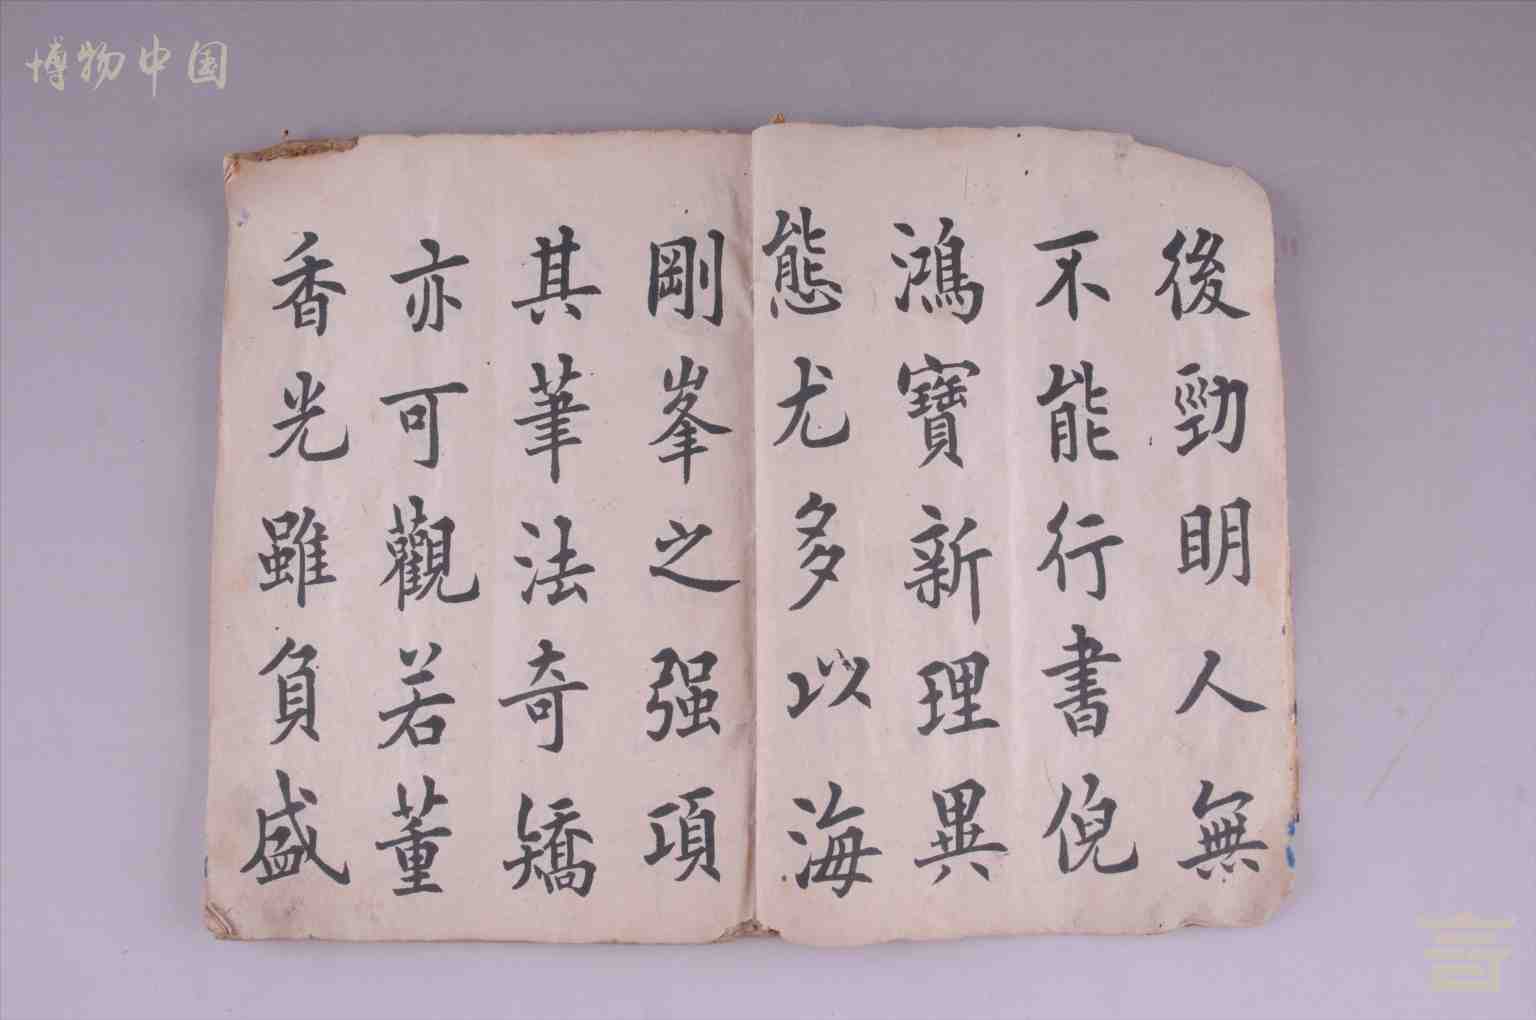 博物中国
後勁明人無
不能行書倪
鴻寶新理異
態尤多以海
剛峯之强項
其筆法奇矯
亦可觀若董
香光雖負盛